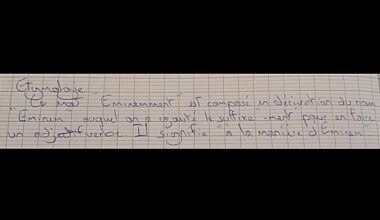 Etymologie
Le mot "Eminemment" est composé en dérivation du nom
"Eminem" auquel on a rajouté le suffixe -ment pour en faire
un adjectif verbe. Il signifie "à la manière d'Eminem"